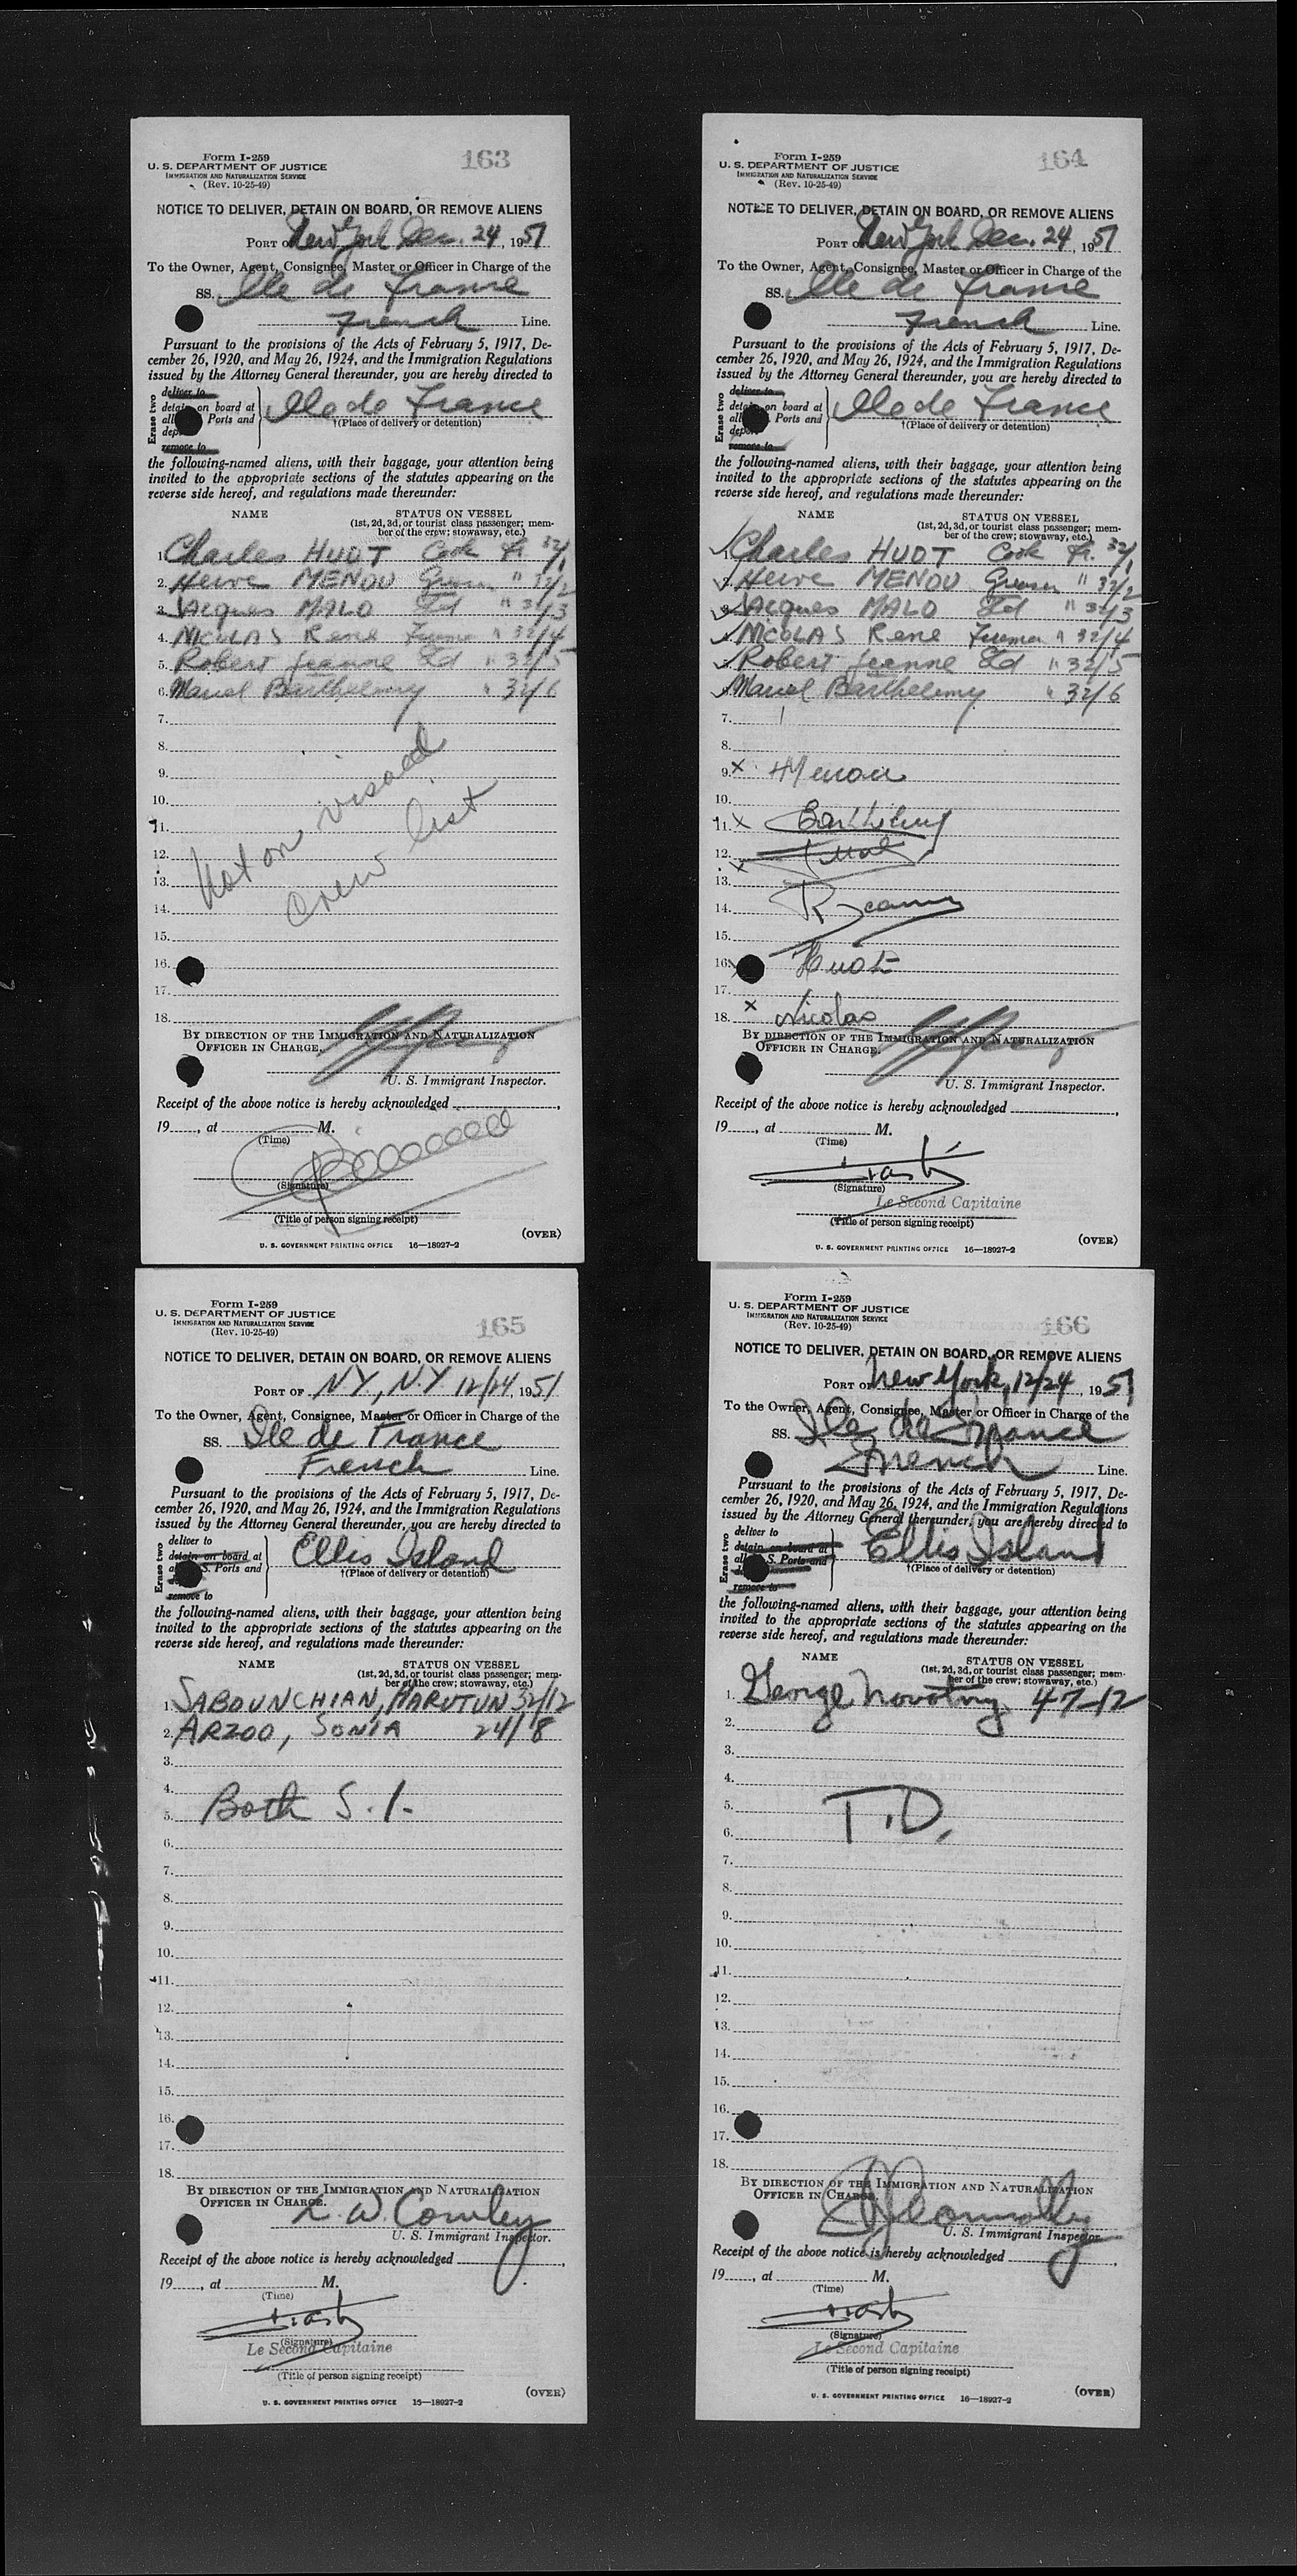 Form I-259
U. S. DEPARTMENT OF JUSTICE
IMMIGRATION AND NATURALIZATION SERVICE
(Rev. 10-25-49)
163
NOTICE TO DELIVER, DETAIN ON BOARD, OR REMOVE ALIENS
PORT OF New York Dec. 24, 1951
To the Owner, Agent, Consignee, Master or Officer in Charge of the
SS. Ile de France
French Line.
Pursuant to the provisions of the Acts of February 5, 1917, De-
cember 26, 1920, and May 26, 1924, and the Immigration Regulations
issued by the Attorney General thereunder, you are hereby directed to
Erase two
deliver to
detain on board at
all Ports and
remove to
Ile de France
†(Place of delivery or detention)
the following-named aliens, with their baggage, your attention being
invited to the appropriate sections of the statutes appearing on the
reverse side hereof, and regulations made thereunder:
NAME STATUS ON VESSEL
(1st, 2d, 3d, or tourist class passenger; mem-
ber of the crew; stowaway, etc.)
1. Charles HUOT Cook Fr. 32/1
2. Herve MENOU " 32/2
3. Jacques MALO " 32/3
4. NICOLAS Rene " 32/4
5. Robert Jeanne " 32/5
6. Marcel Barthelemy " 32/6
7.
8.
9.
10.
11.
12.
13.
14.
15.
16.
17.
18.
Not on visaed
crew list
BY DIRECTION OF THE IMMIGRATION AND NATURALIZATION
OFFICER IN CHARGE.
U. S. Immigrant Inspector.
Receipt of the above notice is hereby acknowledged
19, at M.
(Time)
(Signature)
(Title of person signing receipt)
(OVER)
U. S. GOVERNMENT PRINTING OFFICE 16—18927-2
Form I-259
U. S. DEPARTMENT OF JUSTICE
IMMIGRATION AND NATURALIZATION SERVICE
(Rev. 10-25-49)
164
NOTICE TO DELIVER, DETAIN ON BOARD, OR REMOVE ALIENS
PORT OF New York Dec. 24, 1951
To the Owner, Agent, Consignee, Master or Officer in Charge of the
SS. Ile de France
French Line.
Pursuant to the provisions of the Acts of February 5, 1917, De-
cember 26, 1920, and May 26, 1924, and the Immigration Regulations
issued by the Attorney General thereunder, you are hereby directed to
Erase two
deliver to
detain on board at
all Ports and
remove to
Ile de France
†(Place of delivery or detention)
the following-named aliens, with their baggage, your attention being
invited to the appropriate sections of the statutes appearing on the
reverse side hereof, and regulations made thereunder:
NAME STATUS ON VESSEL
(1st, 2d, 3d, or tourist class passenger; mem-
ber of the crew; stowaway, etc.)
1. Charles HUOT Cook Fr. 32/1
2. Herve MENOU " 32/2
3. Jacques MALO " 32/3
4. NICOLAS Rene Fireman " 32/4
5. Robert Jeanne " 32/5
6. Marcel Barthelemy " 32/6
7.
8.
9. x HMenou
10.
11. x Barthelemy
12. Malo
13. x
14. R Jeanne
15.
16. x Huot
17.
18. x Nicolas
BY DIRECTION OF THE IMMIGRATION AND NATURALIZATION
OFFICER IN CHARGE.
U. S. Immigrant Inspector.
Receipt of the above notice is hereby acknowledged
19, at M.
(Time)
(Signature)
Le Second Capitaine
(Title of person signing receipt)
(OVER)
U. S. GOVERNMENT PRINTING OFFICE 16—18927-2
Form I-259
U. S. DEPARTMENT OF JUSTICE
IMMIGRATION AND NATURALIZATION SERVICE
(Rev. 10-25-49)
165
NOTICE TO DELIVER, DETAIN ON BOARD, OR REMOVE ALIENS
PORT OF NY, NY 12/24, 1951
To the Owner, Agent, Consignee, Master or Officer in Charge of the
SS. Ile de France
French Line.
Pursuant to the provisions of the Acts of February 5, 1917, De-
cember 26, 1920, and May 26, 1924, and the Immigration Regulations
issued by the Attorney General thereunder, you are hereby directed to
Erase two
deliver to
detain on board at
S. Ports and
remove to
Ellis Island
†(Place of delivery or detention)
the following-named aliens, with their baggage, your attention being
invited to the appropriate sections of the statutes appearing on the
reverse side hereof, and regulations made thereunder:
NAME STATUS ON VESSEL
(1st, 2d, 3d, or tourist class passenger; mem-
ber of the crew; stowaway, etc.)
1. SABOUNCHIAN, HARUTUN 32/12
2. ARZOO, SONIA 24/8
3.
4.
Both S.I.
5.
6.
7.
8.
9.
10.
11.
12.
13.
14.
15.
16.
17.
18.
BY DIRECTION OF THE IMMIGRATION AND NATURALIZATION
OFFICER IN CHARGE.
L. W. Conley
U. S. Immigrant Inspector.
Receipt of the above notice is hereby acknowledged
19, at M.
(Time)
(Signature)
Le Second Capitaine
(Title of person signing receipt)
(OVER)
U. S. GOVERNMENT PRINTING OFFICE 16—18927-2
Form I-259
U. S. DEPARTMENT OF JUSTICE
IMMIGRATION AND NATURALIZATION SERVICE
(Rev. 10-25-49)
166
NOTICE TO DELIVER, DETAIN ON BOARD, OR REMOVE ALIENS
PORT OF New York, 12/24, 1951
To the Owner, Agent, Consignee, Master or Officer in Charge of the
SS. Ile de France
French Line.
Pursuant to the provisions of the Acts of February 5, 1917, De-
cember 26, 1920, and May 26, 1924, and the Immigration Regulations
issued by the Attorney General thereunder, you are hereby directed to
Erase two
deliver to
detain on board at
all S. Ports and
remove to
Ellis Island
†(Place of delivery or detention)
the following-named aliens, with their baggage, your attention being
invited to the appropriate sections of the statutes appearing on the
reverse side hereof, and regulations made thereunder:
NAME STATUS ON VESSEL
(1st, 2d, 3d, or tourist class passenger; mem-
ber of the crew; stowaway, etc.)
1. George Novotny 47-12
2.
3.
4.
5.
T.D.
6.
7.
8.
9.
10.
11.
12.
13.
14.
15.
16.
17.
18.
BY DIRECTION OF THE IMMIGRATION AND NATURALIZATION
OFFICER IN CHARGE.
U. S. Immigrant Inspector.
Receipt of the above notice is hereby acknowledged
19, at M.
(Time)
(Signature)
Le Second Capitaine
(Title of person signing receipt)
(OVER)
U. S. GOVERNMENT PRINTING OFFICE 16—18927-2